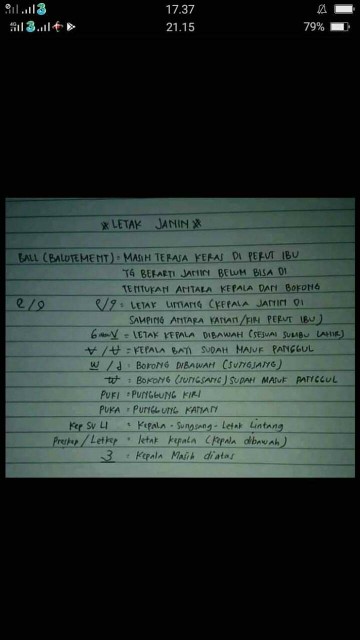 17.37
21.15 79%
* LETAK JANIN *
BALL (BALOTEMENT) = MASIH TERASA KERAS DI PERUT IBU
YG BERARTI JANIN BELUM BISA DI
TENTUKAN ANTARA KEPALA DAN BOKONG
LETAK LINTANG (KEPALA JANIN DI
SAMPING ANTARA KANAN/KIRI PERUT IBU)
= LETAK KEPALA DIBAWAH (SESUAI SUMBU LAHIR)
= KEPALA BAYI SUDAH MASUK PANGGUL
= BOKONG DIBAWAH (SUNGSANG)
= BOKONG (SUNGSANG) SUDAH MASUK PANGGUL
PUKI = PUNGGUNG KIRI
PUKA = PUNGGUNG KANAN
Kep Su Li = Kepala - Sungsang - Letak Lintang
Preskep / Letkep = letak kepala (kepala dibawah)
3 = Kepala Masih diatas